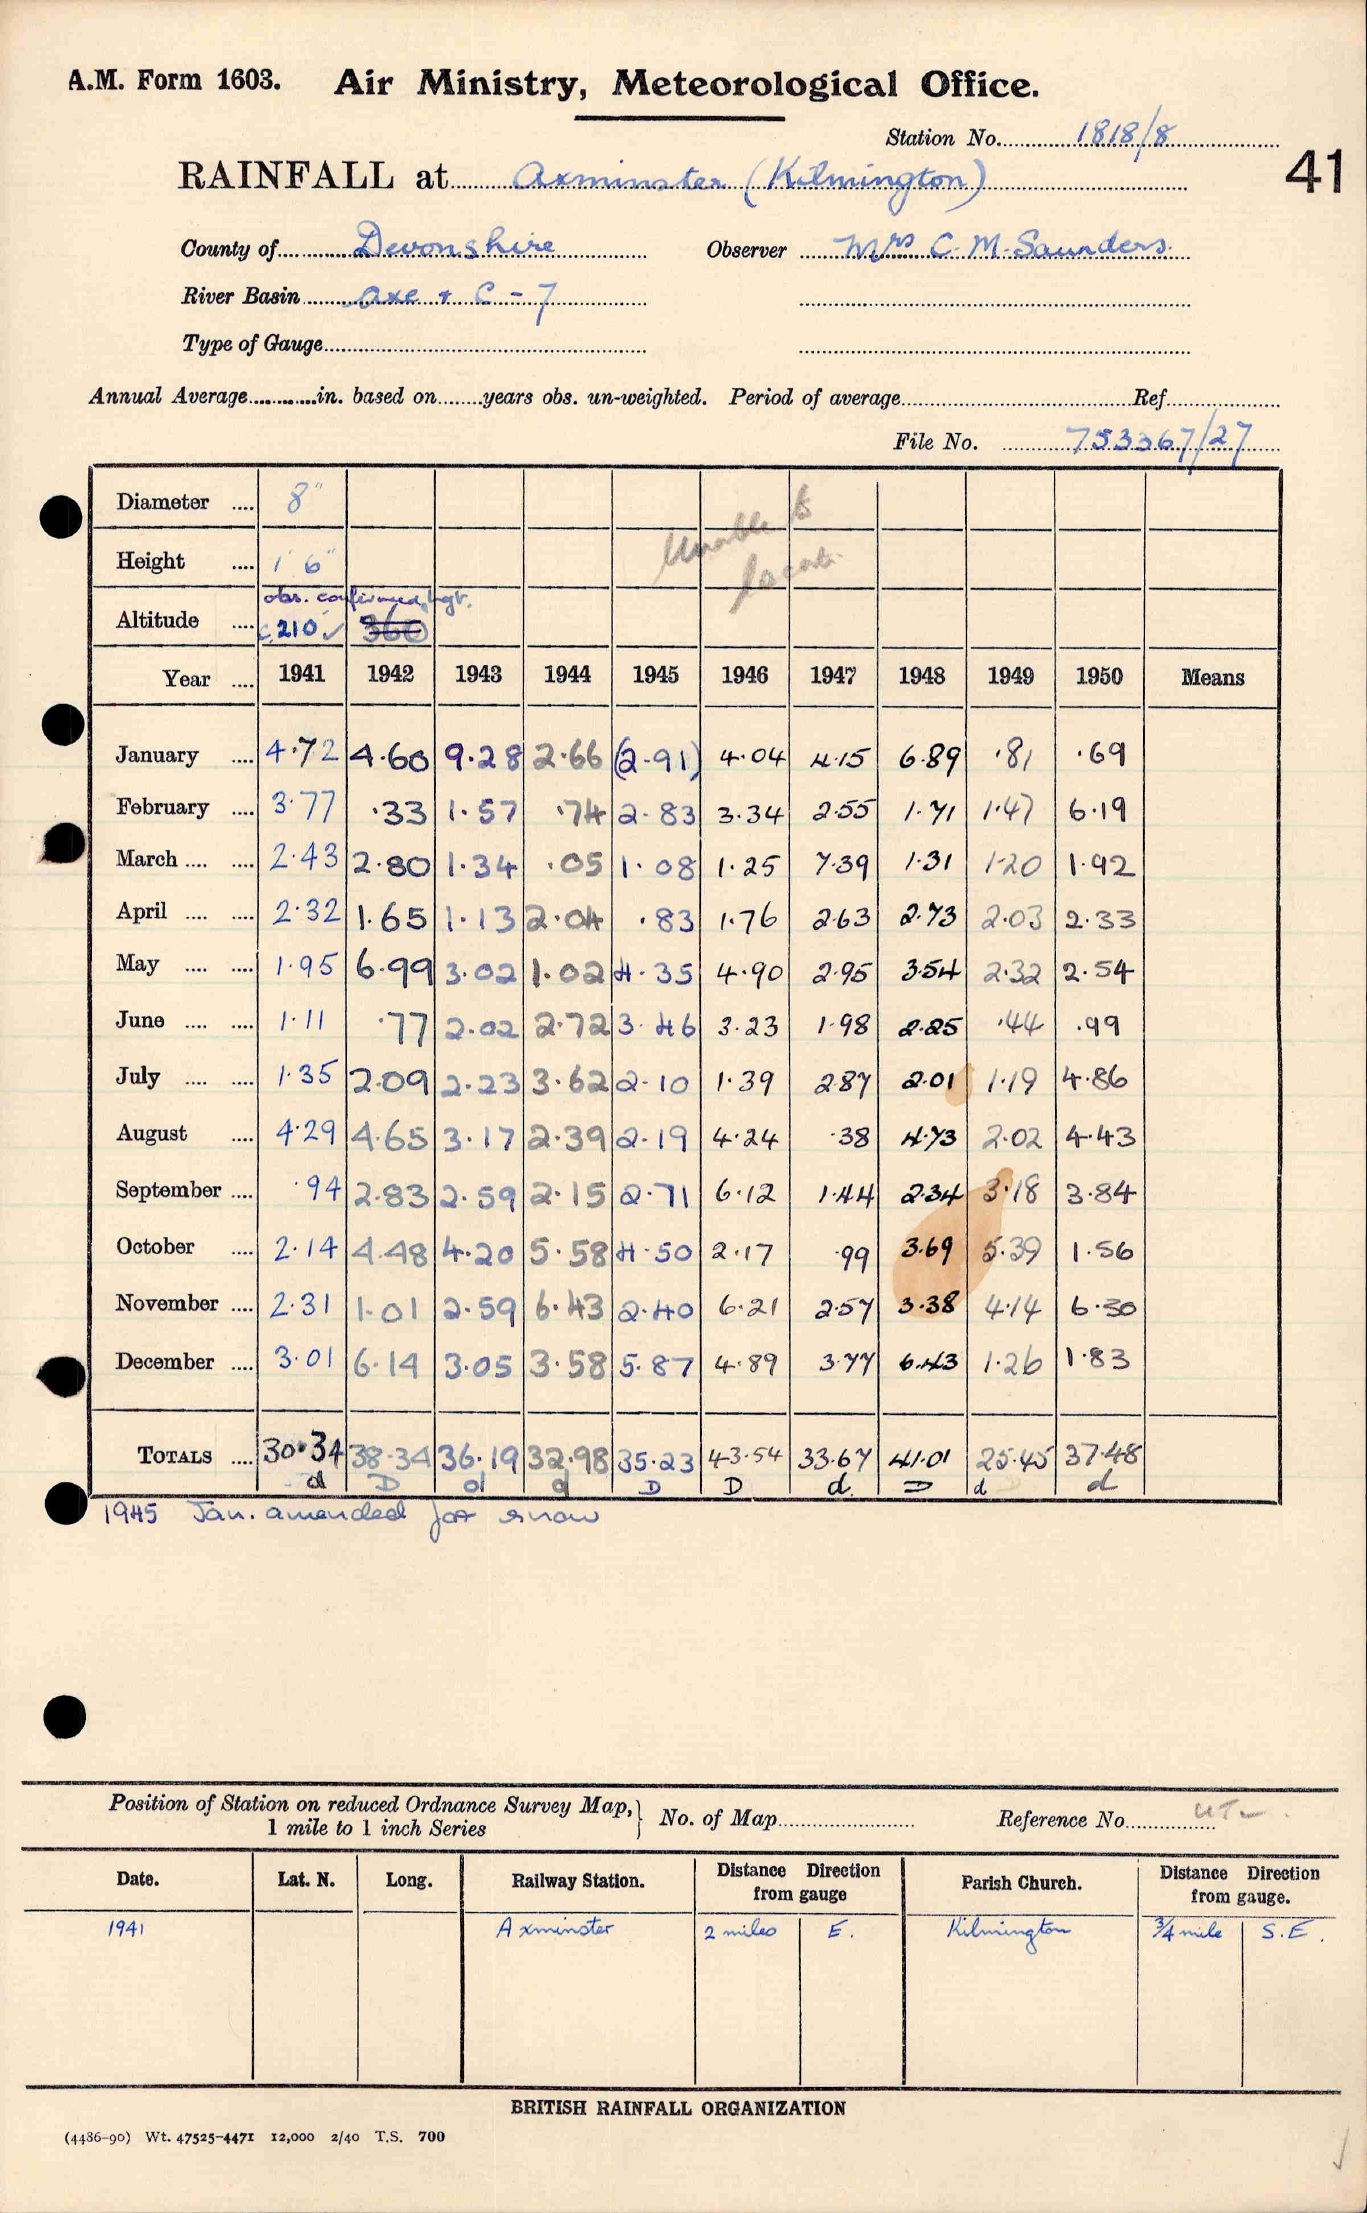 A.M. Form 1603. Air Ministry, Meteorological Office.
Station No. 1818/8
41
RAINFALL at Axminster (Kilmington)
County of Devonshire Observer Mrs C. M. Saunders.
River Basin Axe & C - 7
Type of Gauge
Annual Average in. based on years obs. un-weighted. Period of average Ref
File No. 753367/27
Diameter 8"
Unable to
Height 1' 6"
locate
obs. confirmed hgt.
Altitude c.210 ✓ 360
Year 1941 1942 1943 1944 1945 1946 1947 1948 1949 1950 Means
January 4.72 4.60 9.28 2.66 (2.91) 4.04 4.15 6.89 .81 .69
February 3.77 .33 1.57 .74 2.83 3.34 2.55 1.71 1.47 6.19
March 2.43 2.80 1.34 .05 1.08 1.25 7.39 1.31 1.20 1.92
April 2.32 1.65 1.13 2.04 .83 1.76 2.63 2.73 2.03 2.33
May 1.95 6.99 3.02 1.02 4.35 4.90 2.95 3.54 2.32 2.54
June 1.11 .77 2.02 2.72 3.46 3.23 1.98 2.25 .44 .99
July 1.35 2.09 2.23 3.62 2.10 1.39 2.87 2.01 1.19 4.86
August 4.29 4.65 3.17 2.39 2.19 4.24 .38 4.73 2.02 4.43
September .94 2.83 2.59 2.15 2.71 6.12 1.44 2.34 3.18 3.84
October 2.14 4.48 4.20 5.58 4.50 2.17 .99 3.69 5.39 1.56
November 2.31 1.01 2.59 6.43 2.40 6.21 2.57 3.38 4.14 6.30
December 3.01 6.14 3.05 3.58 5.87 4.89 3.77 6.43 1.26 1.83
TOTALS 30.34 38.34 36.19 32.98 35.23 43.54 33.67 41.01 25.45 37.48
d D d d D D d. D d d
1945 Jan. amended for snow
Position of Station on reduced Ordnance Survey Map,} No. of Map Reference No.
1 mile to 1 inch Series
Date. Lat. N. Long. Railway Station. Distance Direction from gauge Parish Church. Distance Direction from gauge.
1941 Axminster 2 miles E. Kilmington 3/4 mile S.E.
BRITISH RAINFALL ORGANIZATION
(4486-90) Wt. 47525-4471 12,000 2/40 T.S. 700